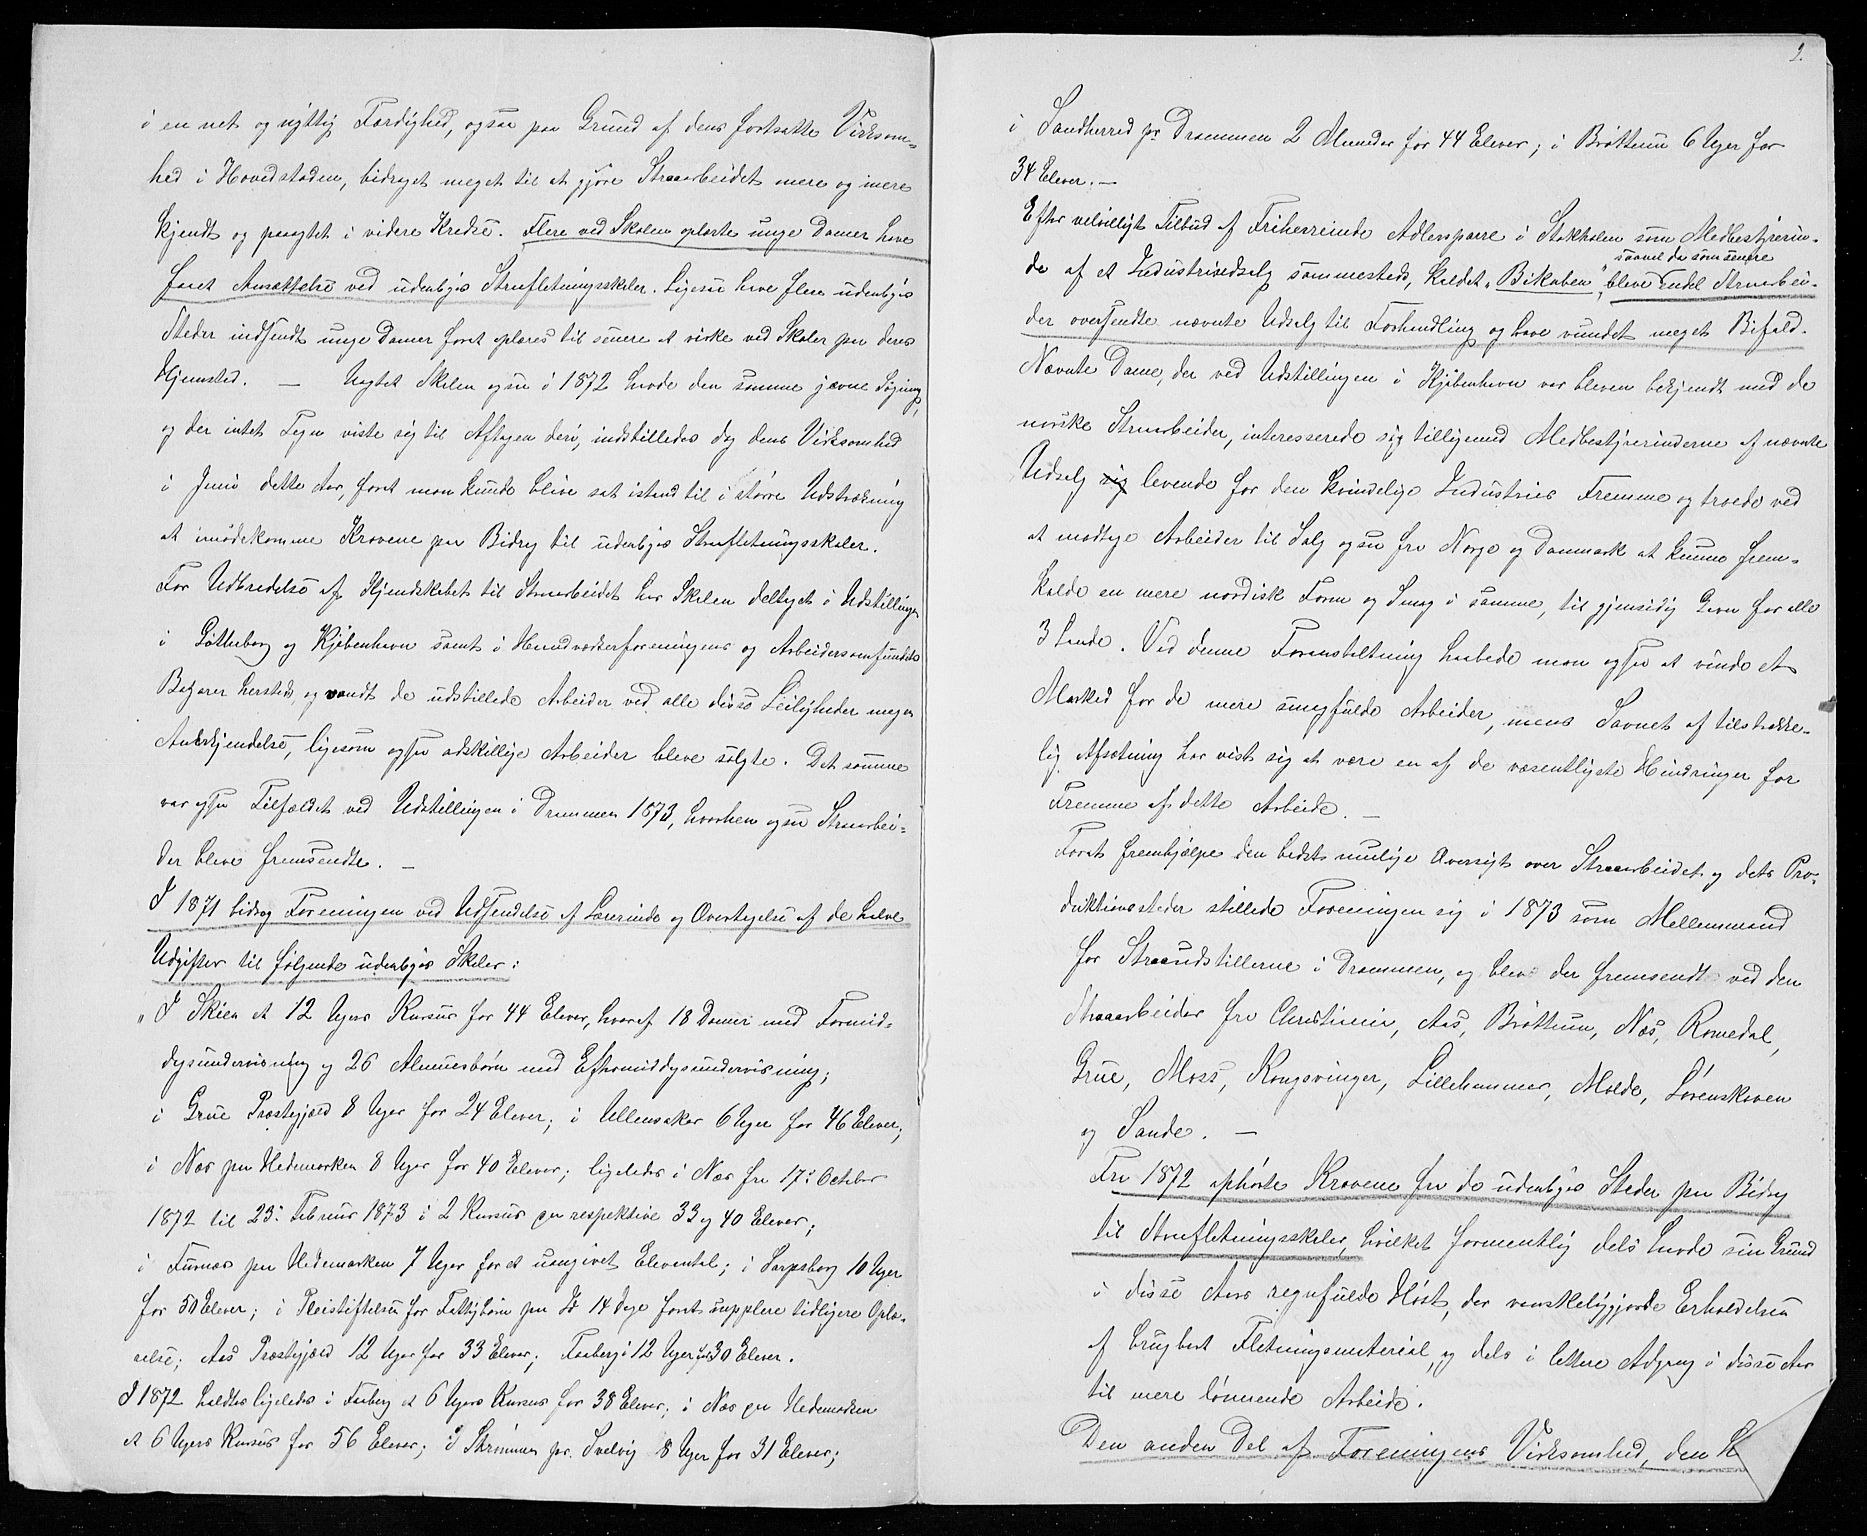 i en net og nyttig Færdighed, ogsaa paa Grund af dens fortsatte Virksom-
hed i Hovedstaden, bidraget meget til at gjøre Straaarbeidet mere og mere
kjendt og paaagtet i videre Kredse. Flere ved Skolen oplærte unge Damer have
faaet Ansættelse ved udenbyes Straafletningsskoler. Ligesaa have flere udenbyes
Steder indsendt unge Damer forat oplæres til senere at virke ved Skoler paa deres
Hjemsted. — Uagtet Skolen ogsaa i 1872 havde den samme jævne Søgning,
og der intet Tegn viste sig til Aftagen deri, indstilledes dog dens Virksomhed
i Juni dette Aar, forat man kunde blive sat istand til i større Udstrækning
at imødekomme Kravene paa Bidrag til udenbyes Straafletningsskoler.
For Udbredelse af Kjendskabet til Straaarbeidet har Skolen deltaget i Udstillinger
i Gøtheborg og Kjøbenhavn samt i Haandværkerforeningens og Arbeidersamfundets
Bazarer hersteds, og vandt de udstillede Arbeider ved alle disse Leiligheder megen
Anerkjendelse, ligesom ogsaa adskillige Arbeider bleve solgte. Det samme
var ogsaa Tilfældet ved Udstillingen i Drammen 1873, hvorhen ogsaa Straaarbei-
der bleve fremsendte. —
I 1871 bidrog Foreningen ved Udsendelse af Lærerinde og Overtagelse af de halve
Udgifter til følgende udenbyes Skoler:
" I Skien et 12 Ugers Kursus for 44 Elever, hvoraf 18 Damer med Formid-
dagsundervisning og 26 Almuesbørn med Eftermiddagsundervisning;
i Grue Præstegjæld 8 Uger for 24 Elever; i Ullensaker 6 Uger for 46 Elever;
i Næs paa Hedemarken 8 Uger for 40 Elever; ligeledes i Næs fra 17de October
1872 til 23de Februar 1873 i 2 Kursus paa respektive 33 og 40 Elever;
i Furnæs paa Hedemarken 7 Uger for et uangivet Elevental; i Sarpsborg 10 Uger
for 50 Elever; i Pleiestiftelsen for Fattigbørn paa 14 Dage forat supplere tidligere Oplæ-
relse; Aas Præstegjæld 12 Uger for 33 Elever; Faaberg i 12 Uger for 30 Elever.
I 1872 holdtes ligeledes i Faaberg et 6 Ugers Kursus for 38 Elever; i Næs paa Hedemarken
et 6 Ugers Kursus for 56 Elever; i Strømmen pr. Svelvig 8 Uger for 31 Elever;
2.
i Sandherred pr Drammen 2 Maaneder for 44 Elever; i Brøttum 6 Uger for
34 Elever. —
Efter velvilligt Tilbud af Friherreinde Adlersparre i Stokholm som Medbestyrerin-
saavel da som senere
de af et Industriudsalg sammesteds, kaldet "Bikuben", bleve endel Straaarbei-
der oversendte nævnte Udsalg til Forhandling og have vundet meget Bifald.
Nævnte Dame, der ved Udstillingen i Kjøbenhavn var bleven bekjendt med de
norske Straaarbeider, interesserede sig tilligemed Medbestyrerinderne af nævnte
Udsalg sig levende for den kvindelige Industries Fremme og troede ved
at modtage Arbeider til Salg ogsaa fra Norge og Danmark at kunne frem-
kalde en mere nordisk Form og Smag i samme, til gjensidig Gavn for alle
3 Lande. Ved denne Foranstaltning haabede man ogsaa at vinde et
Marked for de mere smagfulde Arbeider, mens Savnet af tilstrække-
lig Afsætning har vist sig at være en af de væsentligste Hindringer for
Fremme af dette Arbeide. —
Forat fremhjælpe den bedst mulige Oversigt over Straaarbeidet og dets Pro-
duktionssteder stillede Foreningen sig i 1873 som Mellemmand
for Straaudstillerne i Drammen, og blev der fremsendt ved den
Straaarbeider fra Christiania, Aas, Brøttum, Næs, Romedal,
Grue, Moss, Kongsvinger, Lillehammer, Molde, Lørenskoven
og Sande. —
Fra 1872 ophørte Kravene fra de udenbyes Steder paa Bidrag
til Straafletningsskoler, hvilket formentlig dels havde sin Grund
i disse Aars regnfulde Høst, der vanskeliggjorde Erholdelsen
af brugbart Fletningsmaterial, og dels i lettere Adgang i disse Aar
til mere lønnende Arbeide.
Den anden Del af Foreningens Virksomhed, den